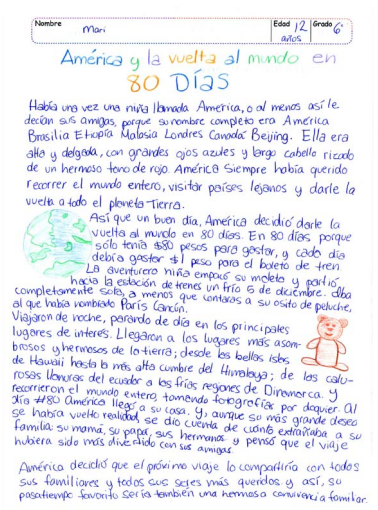 Nombre Mari Edad 12 años Grado 6°
América y la vuelta al mundo en
80 DÍAS
Había una vez una niña llamada América, o al menos así le
decían sus amigos, porque su nombre completo era América
Brasilia Etiopía Malasia Londres Canadá Beijing. Ella era
alta y delgada, con grandes ojos azules y largo cabello rizado
de un hermoso tono de rojo. América siempre había querido
recorrer el mundo entero, visitar países lejanos y darle la
vuelta a todo el planeta Tierra.
Así que un buen día, América decidió darle la
vuelta al mundo en 80 días. En 80 días porque
sólo tenía $80 pesos para gastar, y cada día
debía gastar $1 peso para el boleto de tren.
La aventurera niña empacó su maleta y partió
hacia la estación de trenes un frío 5 de diciembre. Iba
completamente sola, a menos que contaras a su osito de peluche,
al que había nombrado París Cancún.
Viajaron de noche, parando de día en los principales
lugares de interés. Llegaron a los lugares más asom-
brosos y hermosos de la tierra; desde las bellas islas
de Hawaii hasta la más alta cumbre del Himalaya; de las calu-
rosas llanuras del ecuador a las frías regiones de Dinamarca. Y
recorrieron el mundo entero, tomando fotografías por doquier. Al
día #80 América llegó a su casa. Y, aunque su más grande deseo
se había vuelto realidad, se dio cuenta de cuánto extrañaba a su
familia: su mamá, su papá, sus hermanos y pensó que el viaje
hubiera sido más divertido con sus amigas.
América decidió que el próximo viaje lo compartiría con todos
sus familiares y todos sus seres más queridos y así, su
pasatiempo favorito sería también una hermosa convivencia familiar.